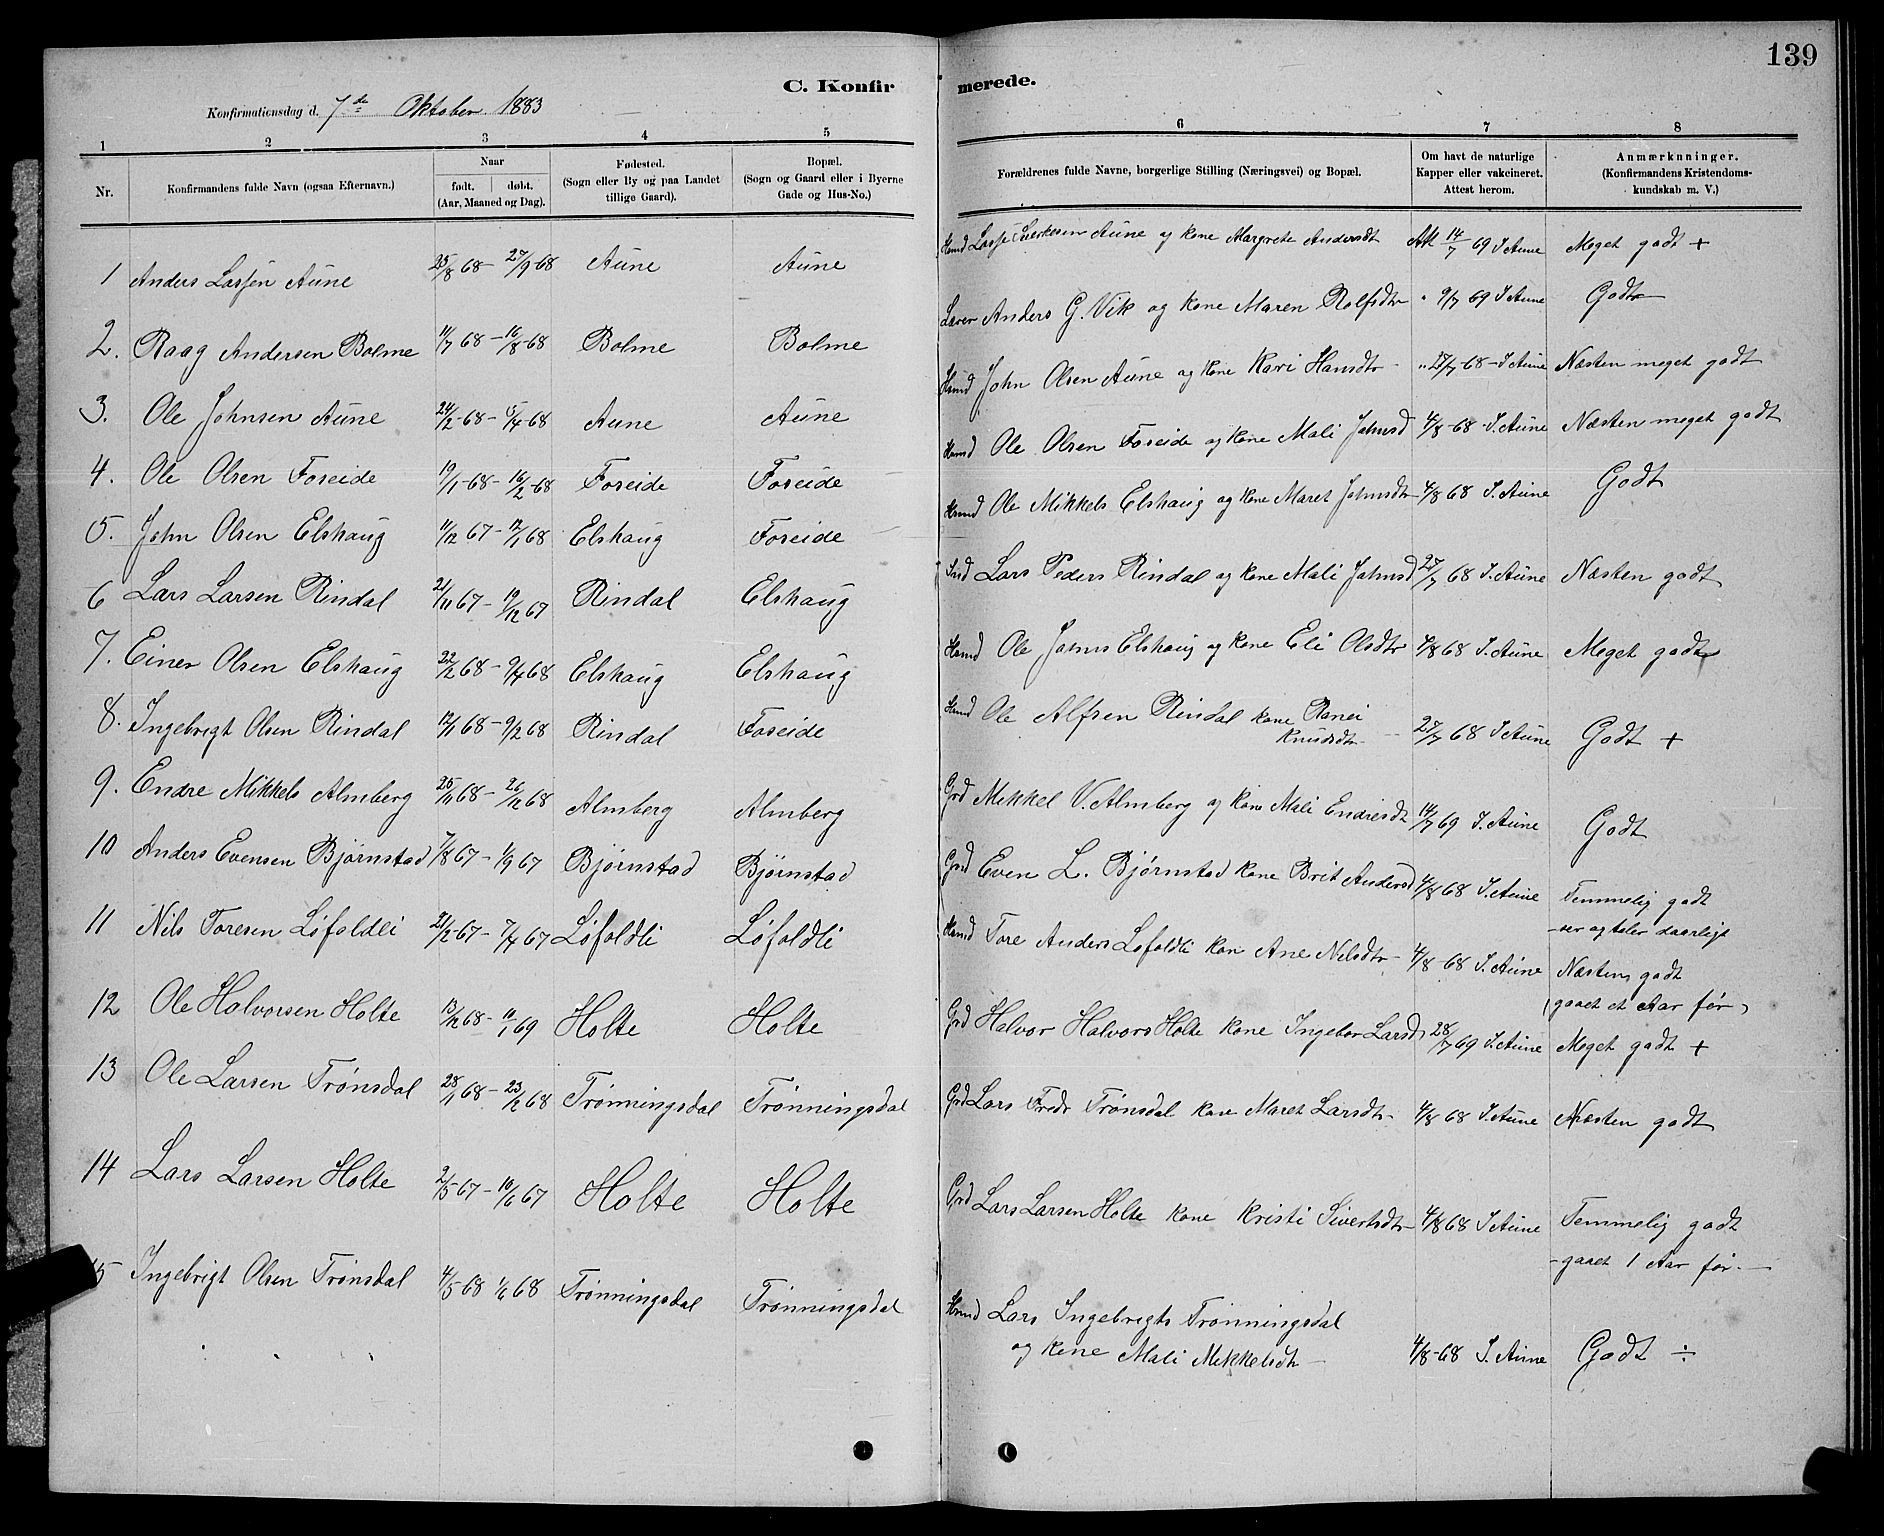 139
C. Konfirmerede.
Konfirmationsdag d. 7de Oktober 1883
1 2 3 4 5 6 7 8
Nr. Konfirmandens fulde Navn (ogsaa Efternavn.) Naar født. døbt. (Aar, Maaned og Dag). Fødested. (Sogn eller By og paa Landet tillige Gaard). Bopæl. (Sogn og Gaard eller i Byerne Gade og Hus-No.) Forældrenes fulde Navne, borgerlige Stilling (Næringsvei) og Bopæl. Om havt de naturlige Kapper eller vakcineret. Attest herom. Anmærkninger. (Konfirmandens Kristendomskundskab m. V.)
1 Anders Lassen Aune 25/8 68 - 27/9 68 Aune Aune Lasse Aune og kone Margrete Andersdt Att 14/7 69 J Aune Meget godt +
2. Raag Andersen Bolme 11/7 68 - 16/8 68 Bolme Bolme Lærer Anders G. Vik og kone Maren Rolfsdtr " 9/7 69 J Aune Godt
3. Ole Johnsen Aune 24/2 68 - 15/4 68 Aune Aune Husmd John Olsen Aune og kone Kari Hansdtr " 27/7 68 - J Aune Næsten meget godt
4. Ole Olsen Foseide 19/1 68 - 16/2 68 Foseide Foseide Husmd Ole Olsen Foseide og kone Mali Johnsd 4/8 68 J. Aune Næsten meget godt
5. John Olsen Elshaug 11/12 67 - 12/1 68 Elshaug Foseide Husmd Ole Mikkels Elshaug og kone Maret Johnsdtr 4/8 68 J. Aune Godt
6 Lars Larsen Rindal 21/11 67 - 19/12 67 Rindal Elshaug Lars Peders Rindal og kone Mali Johnsd 27/7 68 J. Aune Næsten godt
7. Einer Olsen Elshaug 22/2 68 - 9/4 68 Elshaug Elshaug Husmd Ole Johns Elshaug og kone Eli Olsdtr 4/8 68 J. Aune Meget godt
8. Ingebrigt Olsen Rindal 12/1 68 - 9/2 68 Rindal Foseide Husmd Ole Alfsen Rindal kone Ranei Knudsdtr 27/7 68 J Aune Godt +
9. Endre Mikkels Almberg 25/11 68 - 26/12 68 Almberg Almberg Grd Mikkel V. Almberg og kone Mali Endresdt 14/7 69 J. Aune Godt
10 Anders Evensen Bjørnstad 7/8 67 - 1/9 67 Bjørnstad Bjørnstad Grd Even L. Bjørnstad kone Brit Andersd 4/8 68 J. Aune Temmelig godt
- ser og taler daarligt
11 Nils Toresen Løfoldli 21/2 67 - 7/4 67 Løfoldli Løfoldli Husmd Tore Anders Løfoldli kon Ane Nilsdtr 4/8 68 J. Aune Næsten godt
(gaaet et Aar før)
12 Ole Halvorsen Holte 13/12 68 - 10/1 69 Holte Holte Grd Halvor Halvors Holte kone Ingebor Larsd 28/7 69 J. Aune Meget godt +
13 Ole Larsen Trønsdal 28/1 68 - 23/2 68 Trønningsdal Trønningsdal Grd Lars Fredr Trønsdal kone Maret Larsdtr 4/8 68 J. Aune Næsten godt
14 Lars Larsen Holte 2/5 67 - 10/6 67 Holte Holte Grd Lars Larsen Holte kone Kristi Sivertsdtr 4/8 68 J Aune Temmelig godt
- gaaet 1 Aar før -
15 Ingebrigt Olsen Trønsdal 4/5 68 1/6 68 Trønningsdal Trønningsdal Husmd Lars Ingebrigts Trønningsdal
og kone Mali Mikkelsdtr 4/8 68 J. Aune Godt ÷